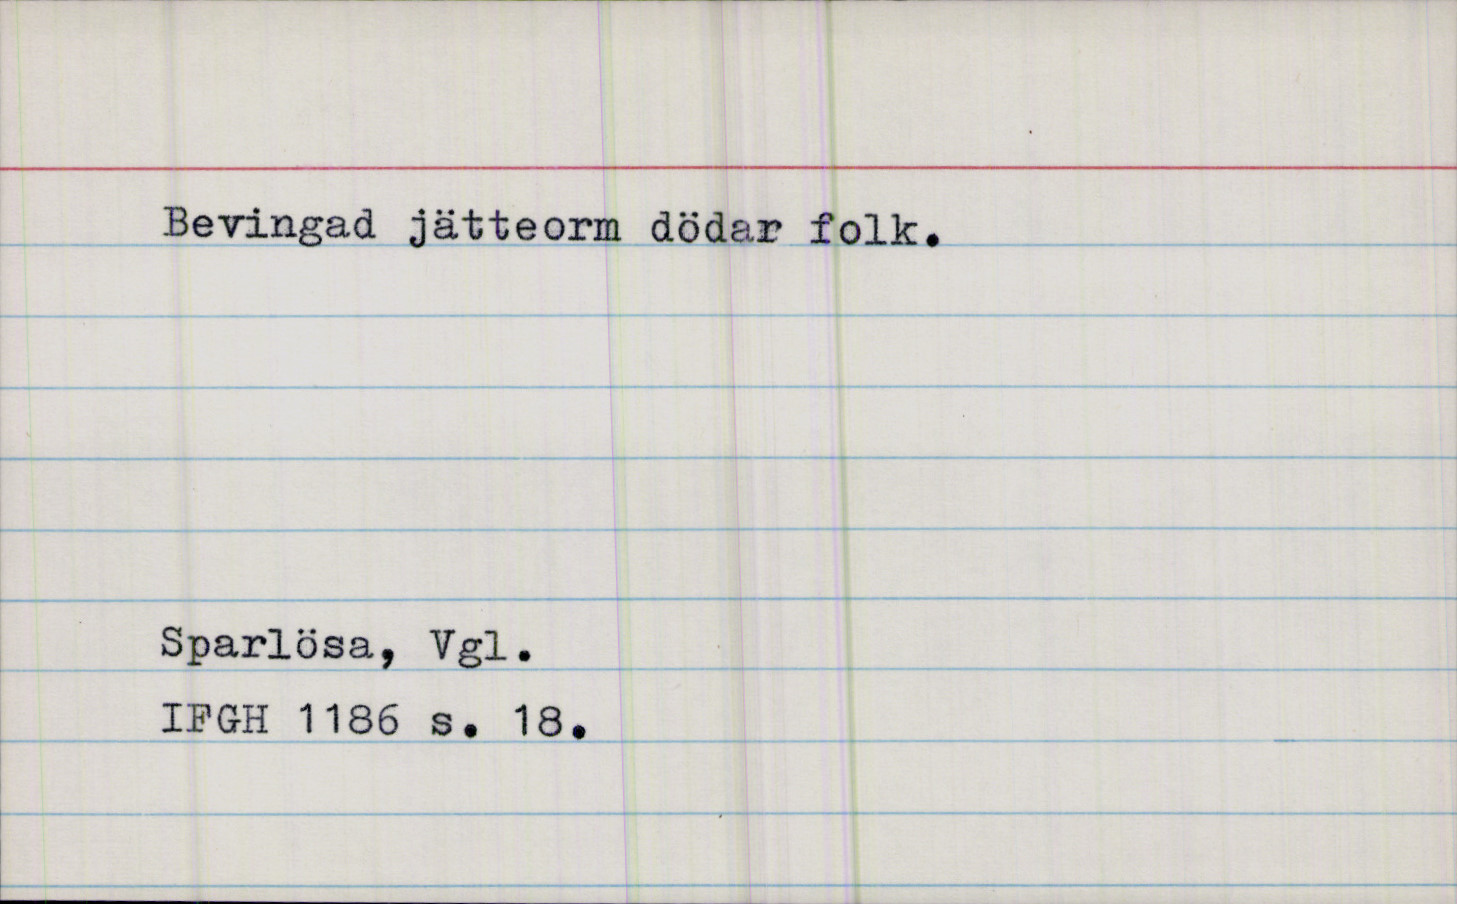 Bevingad jätteorm dödar folk.
Sparlösa, Vgl.
IFGH 1186 s. 18.